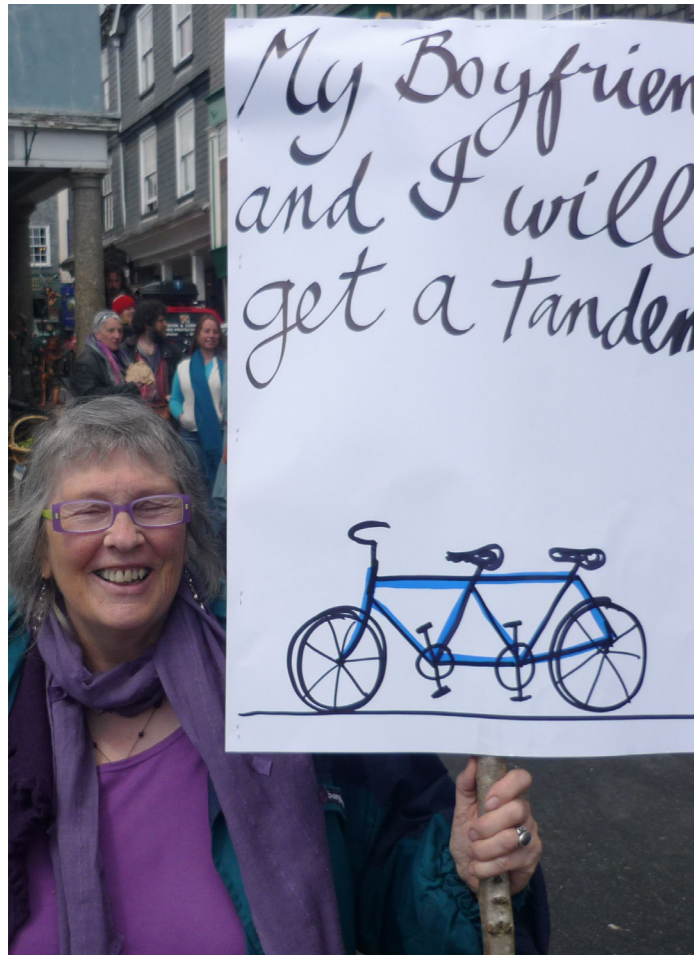 My Boyfrien
and I will
get a Tandem